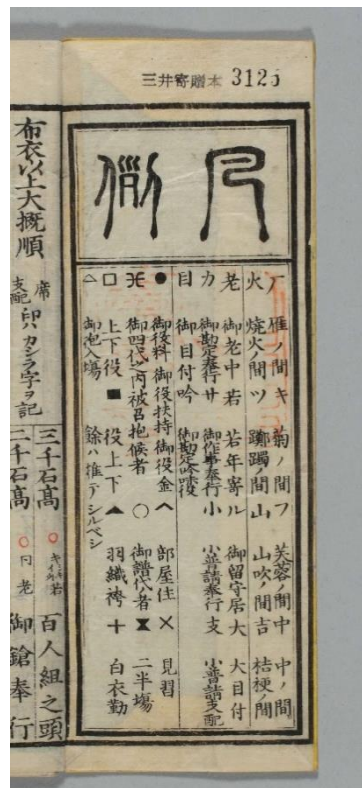 三井寄贈本 3125
凡例
厂 雁ノ間 キ 菊ノ間 フ 芙蓉ノ間 中 中ノ間
火 焼火ノ間 ツ 躑躅ノ間 山 山吹ノ間 吉 桔梗ノ間
老 御老中 若 若年寄 ル 御留守居 大 大目付
カ 御勘定奉行 サ 御作事奉行 小 小普請奉行 支 小普請支配
目 御目付 吟 御勘定吟味役
● 御役料 御役扶持 御役金 ヘ 部屋住 × 見習
御四代之内被召抱候者 ○ 御譜代者 ⧗ 二半場
□ 上下役 ■ 役上下 ▲ 羽織袴 十 白衣勤
△ 御抱入場 餘ハ推テシルベシ
布衣以上大概順
席 支配 印ハカシラ字ヲ記
三千石高 ○ 若 百人組之頭
二千石高 ○ 同 老 御鎗奉行